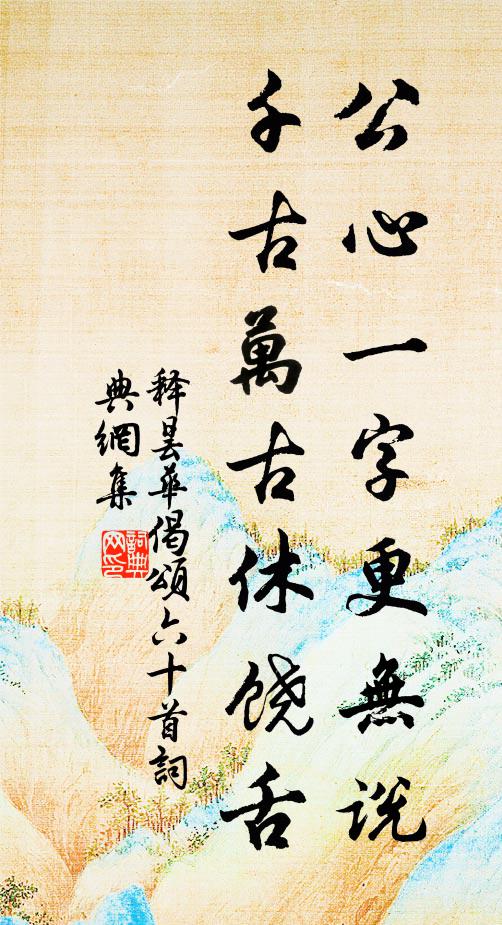 公心一字更無説
千古萬古休饶舌
释曇華偈頌六十首詞
典網集
詞典
网印